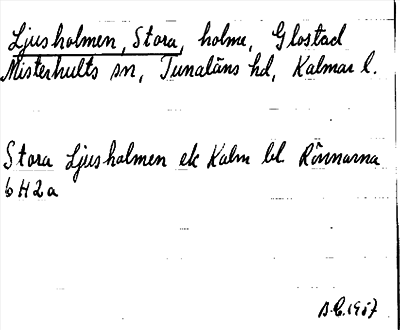 Ljusholmen, Stora, holme, Glostad
Misterhults sn, Tunaläns hd, Kalmar l.
Stora Ljusholmen ek Kalm bl Rönnarna
6 H 2 a
B.C. 1957